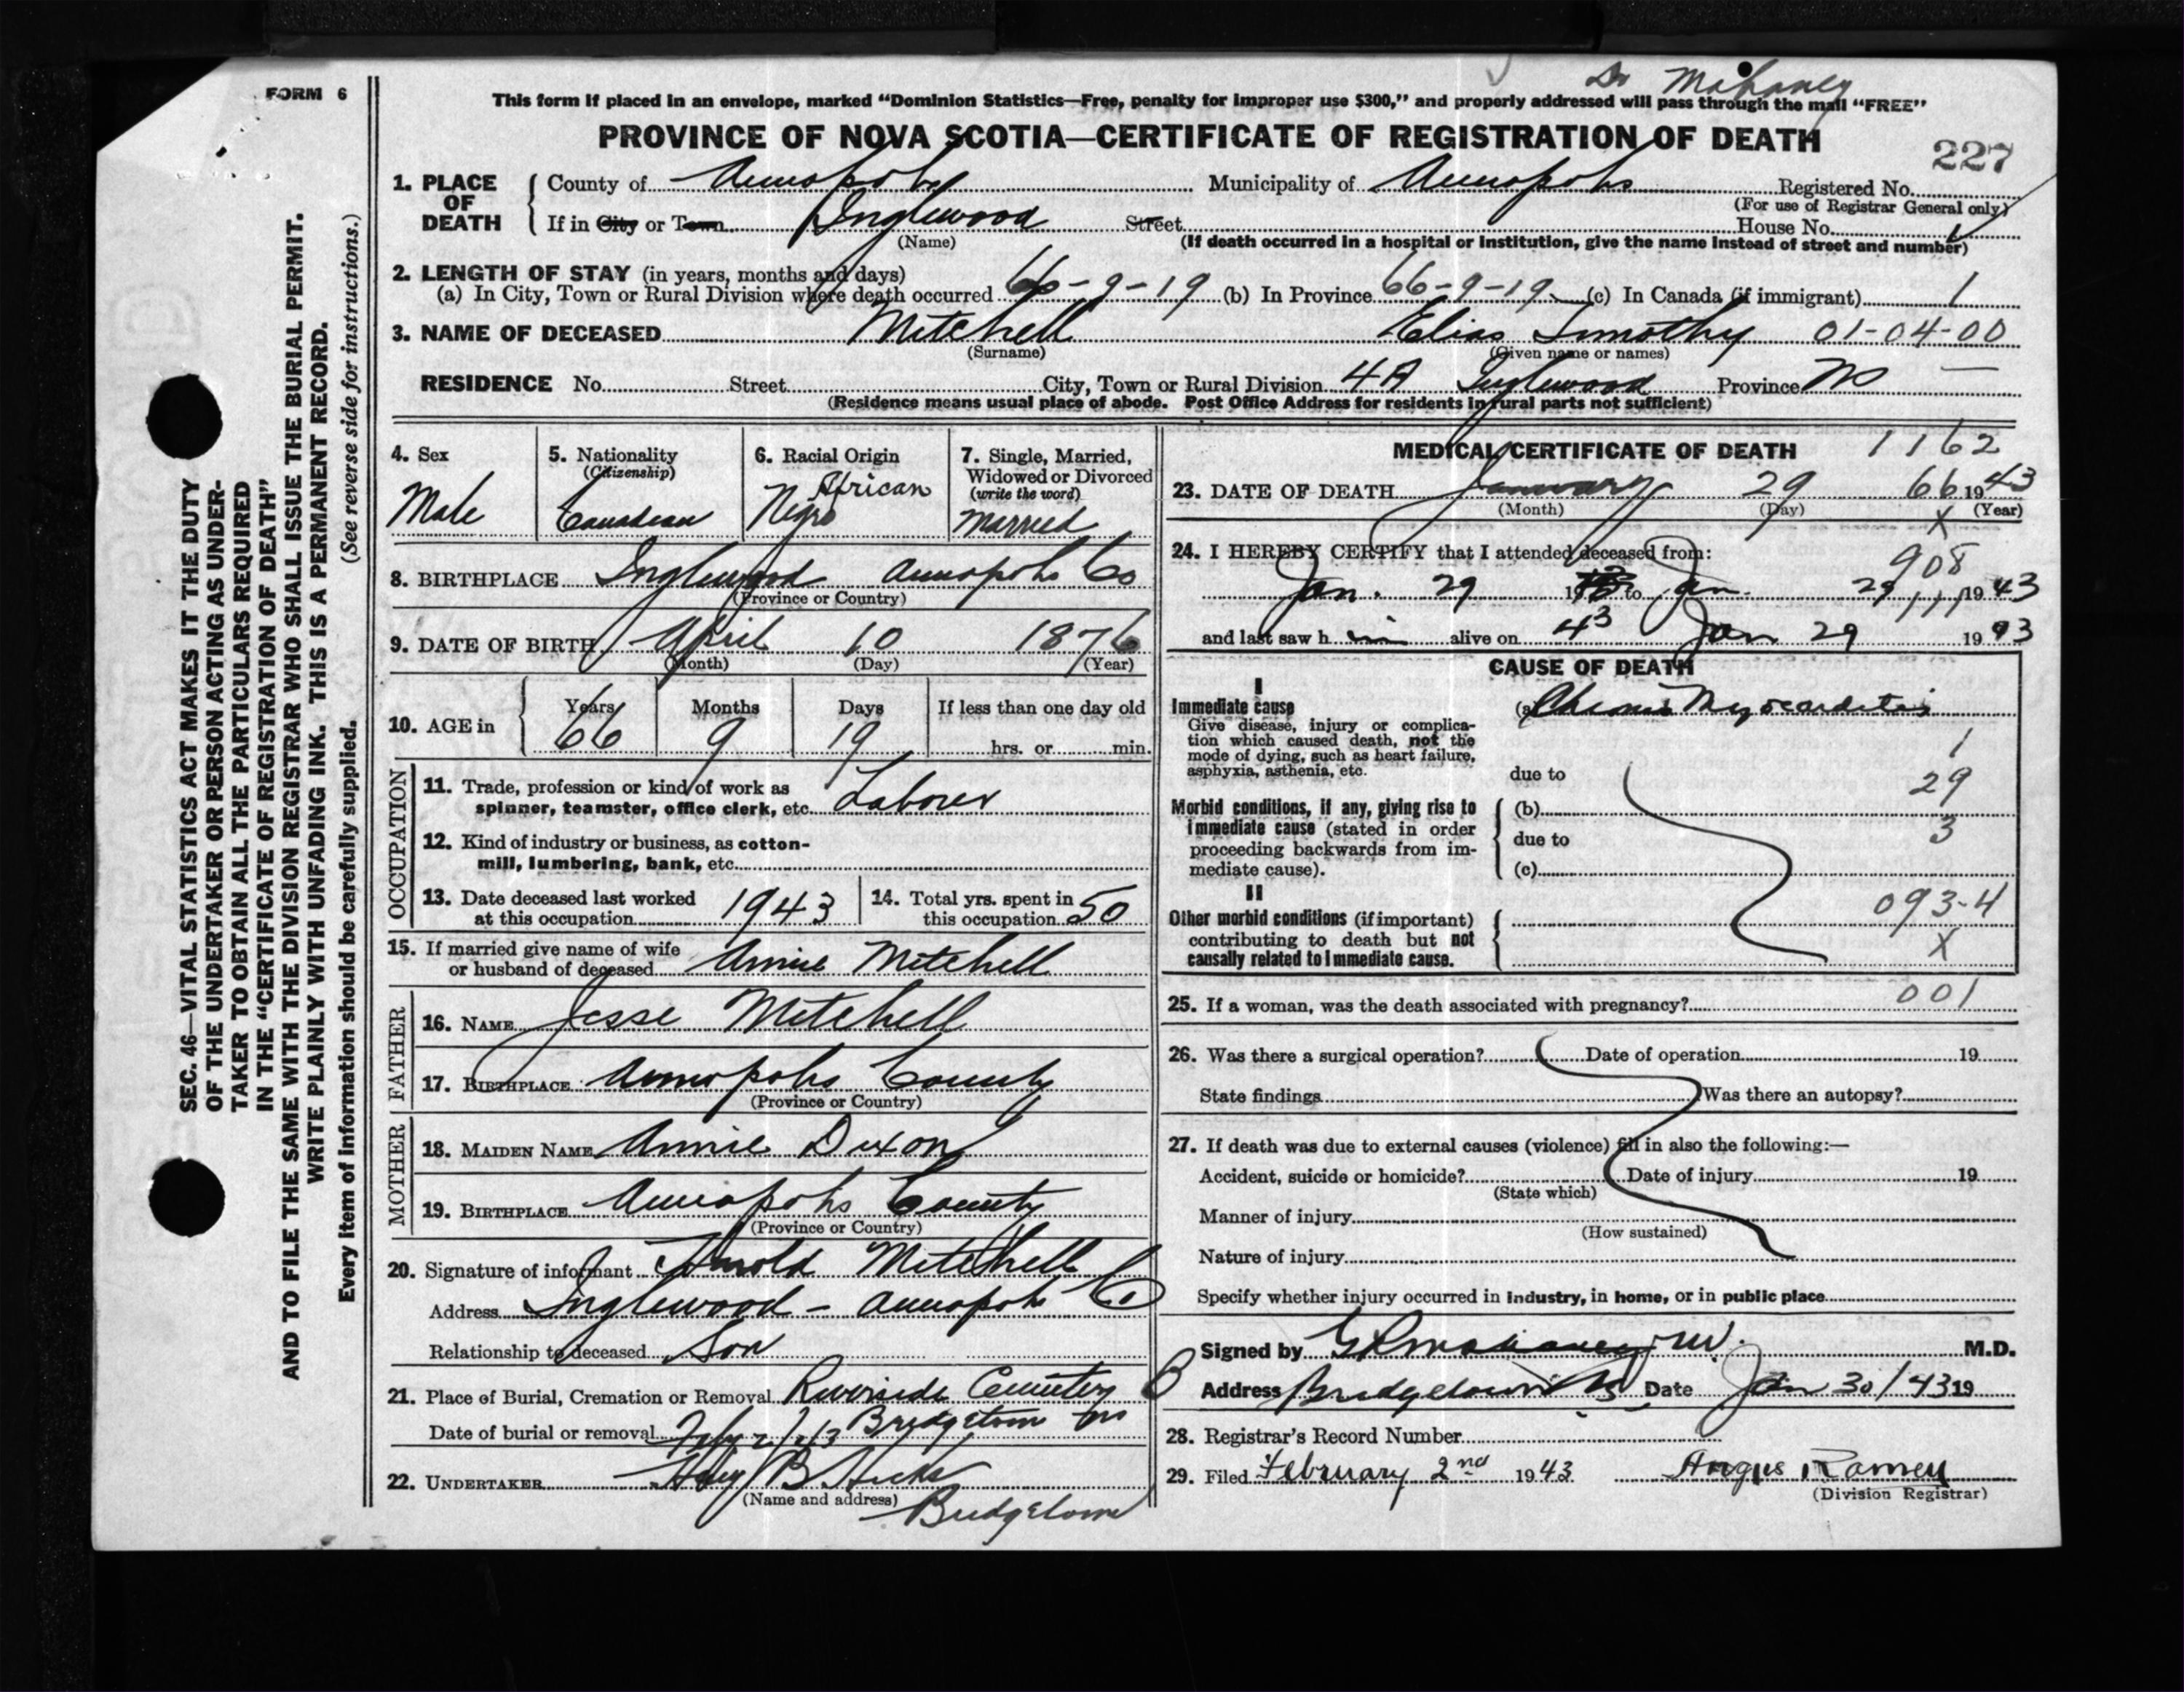 FORM 6
Dr Mahaney
This form if placed in an envelope, marked “Dominion Statistics—Free, penalty for improper use $300,” and properly addressed will pass through the mail “FREE”
PROVINCE OF NOVA SCOTIA—CERTIFICATE OF REGISTRATION OF DEATH
227
1. PLACE OF DEATH
County of Annapolis Municipality of Annapolis Registered No.
(For use of Registrar General only)
If in City or Town Inglewood Street House No.
(Name) (If death occurred in a hospital or institution, give the name instead of street and number)
2. LENGTH OF STAY (in years, months and days)
(a) In City, Town or Rural Division where death occurred 66-9-19 (b) In Province 66-9-19 (c) In Canada (if immigrant) 1
3. NAME OF DECEASED Mitchell Elias Timothy 01-04-00
(Surname) (Given name or names)
RESIDENCE No. Street City, Town or Rural Division 4A Inglewood Province NS
(Residence means usual place of abode. Post Office Address for residents in rural parts not sufficient)
4. Sex
Male
5. Nationality
(Citizenship)
Canadian
6. Racial Origin
African
Negro
7. Single, Married,
Widowed or Divorced
(write the word)
Married
8. BIRTHPLACE Inglewood Annapolis Co
(Province or Country)
9. DATE OF BIRTH April 10 1876
(Month) (Day) (Year)
10. AGE in
Years Months Days If less than one day old
66 9 19 hrs. or min.
OCCUPATION
11. Trade, profession or kind of work as
spinner, teamster, office clerk, etc. Laborer
12. Kind of industry or business, as cotton-
mill, lumbering, bank, etc.
13. Date deceased last worked
at this occupation 1943
14. Total yrs. spent in
this occupation 50
15. If married give name of wife
or husband of deceased Annie Mitchell
FATHER
16. NAME Jesse Mitchell
17. BIRTHPLACE Annapolis County
(Province or Country)
MOTHER
18. MAIDEN NAME Annie Dixon
19. BIRTHPLACE Annapolis County
(Province or Country)
20. Signature of informant Arnold Mitchell
Address Inglewood - Annapolis Co.
Relationship to deceased Son
21. Place of Burial, Cremation or Removal Riverside Cemetery
Bridgetown NS
Date of burial or removal
22. UNDERTAKER B Hicks
(Name and address)
Bridgetown
MEDICAL CERTIFICATE OF DEATH 1162
23. DATE OF DEATH January 29 66 1943
(Month) (Day) (Year)
X
24. I HEREBY CERTIFY that I attended deceased from:
908
Jan. 29 19 to Jan. 29 1943
111
and last saw h im alive on 43 Jan 29 1943
CAUSE OF DEATH
I
Immediate cause
Give disease, injury or complica-
tion which caused death, not the
mode of dying, such as heart failure,
asphyxia, asthenia, etc.
(a) Chronic Myocarditis
1
due to
29
Morbid conditions, if any, giving rise to
immediate cause (stated in order
proceeding backwards from im-
mediate cause).
(b)
3
due to
(c)
II
Other morbid conditions (if important)
contributing to death but not
causally related to immediate cause.
093-4
X
25. If a woman, was the death associated with pregnancy? 001
26. Was there a surgical operation? Date of operation 19
State findings Was there an autopsy?
27. If death was due to external causes (violence) fill in also the following:—
Accident, suicide or homicide? Date of injury 19
(State which)
Manner of injury
(How sustained)
Nature of injury
Specify whether injury occurred in industry, in home, or in public place
Signed by M.D.
Address Bridgetown NS Date Jan 30/43 19
28. Registrar's Record Number
29. Filed February 2nd 1943 Angus Ramey
(Division Registrar)
SEC. 46—VITAL STATISTICS ACT MAKES IT THE DUTY
OF THE UNDERTAKER OR PERSON ACTING AS UNDER-
TAKER TO OBTAIN ALL THE PARTICULARS REQUIRED
IN THE “CERTIFICATE OF REGISTRATION OF DEATH”
AND TO FILE THE SAME WITH THE DIVISION REGISTRAR WHO SHALL ISSUE THE BURIAL PERMIT.
WRITE PLAINLY WITH UNFADING INK. THIS IS A PERMANENT RECORD.
Every item of information should be carefully supplied. (See reverse side for instructions.)